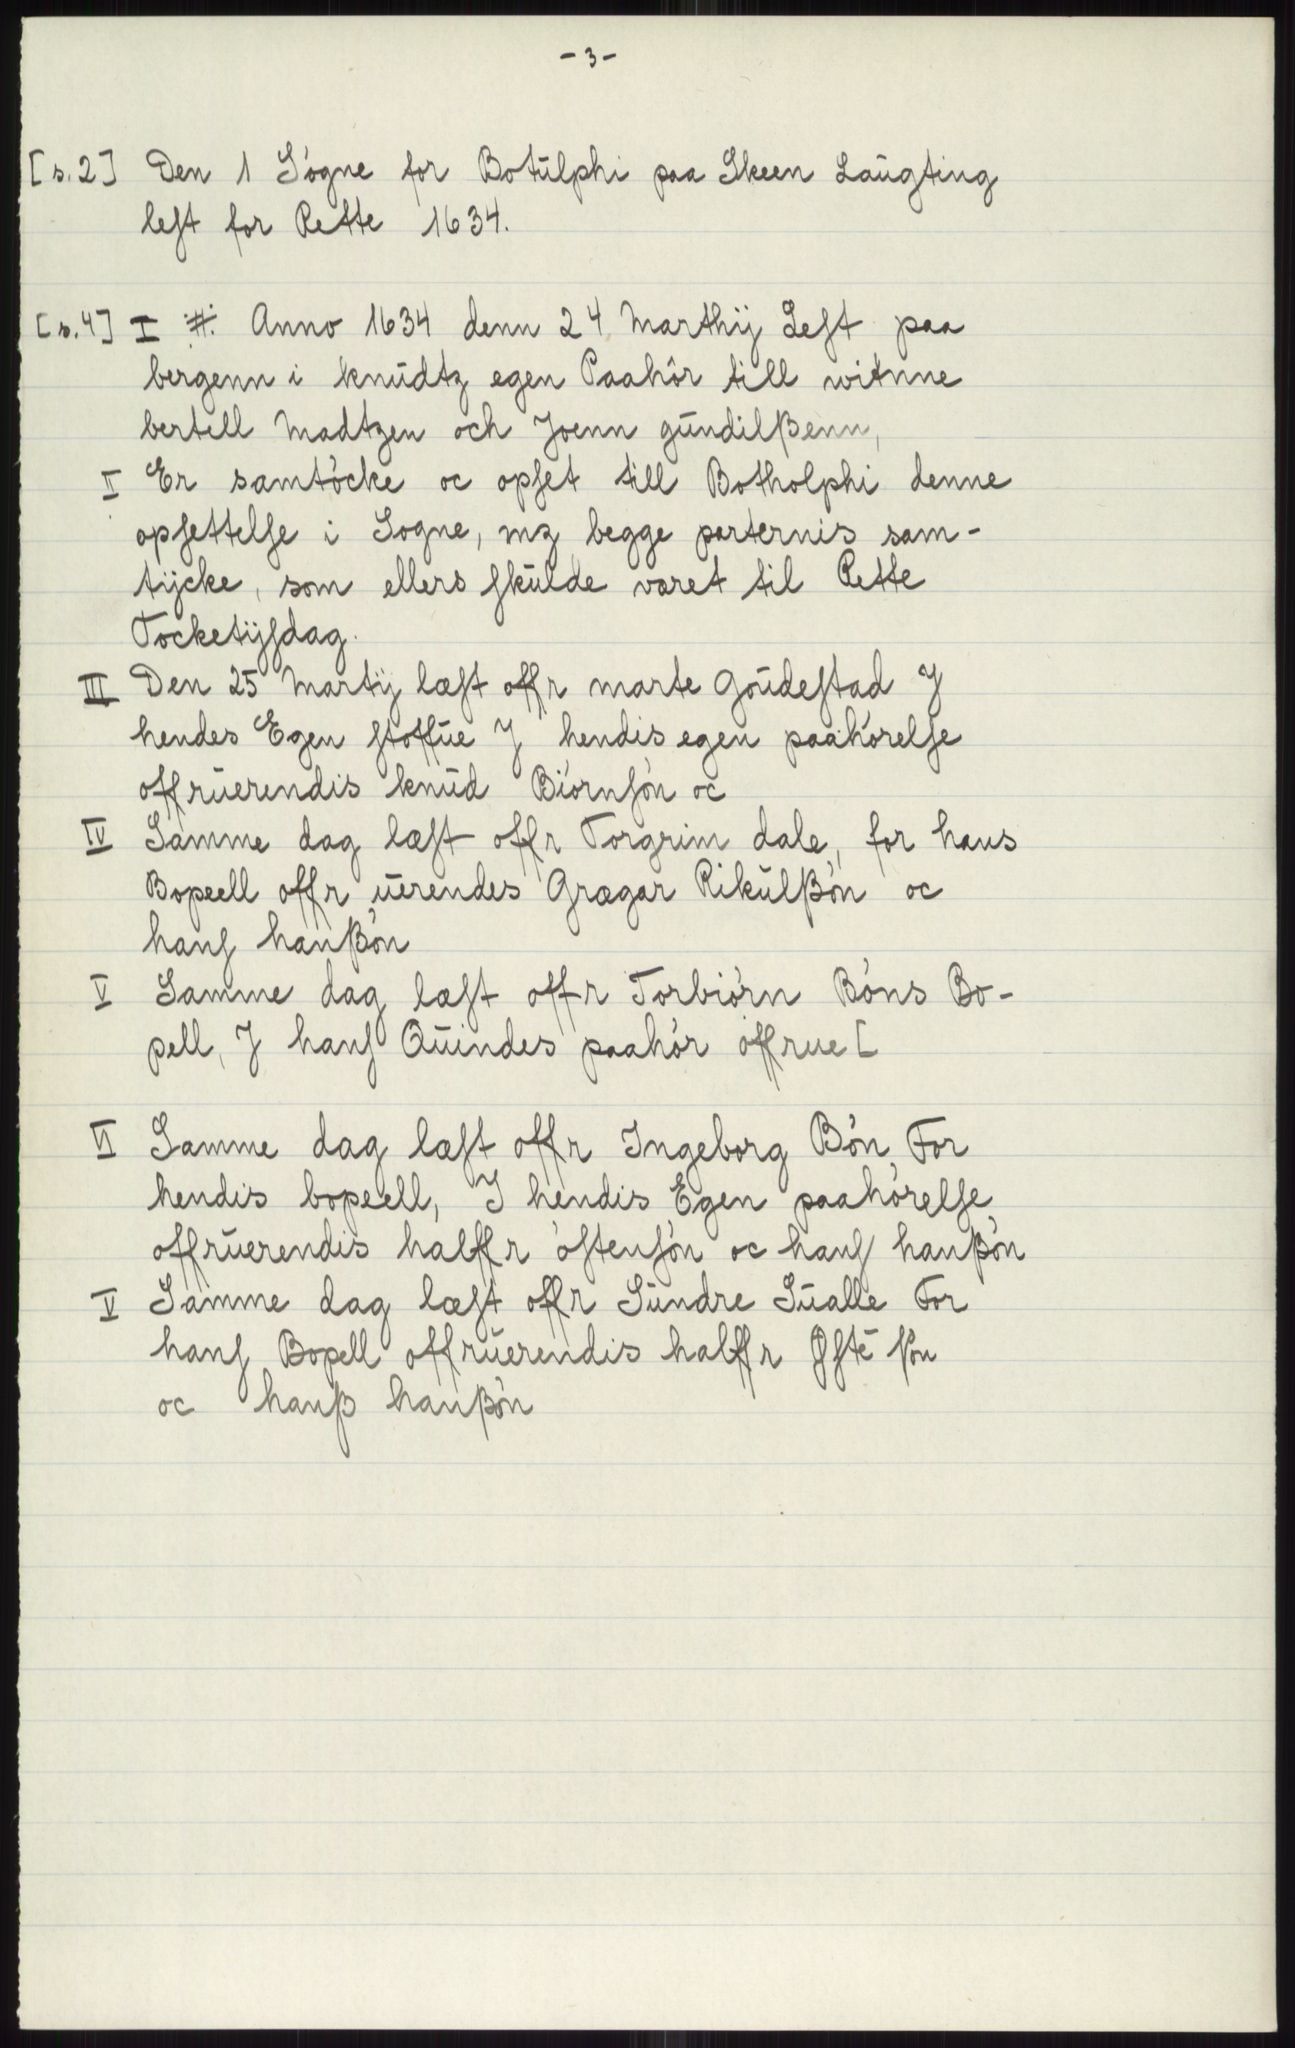 - 3 -
[s. 2] Den 1 Sógne for Botülphi paa Skeen Laügting
lest for Rette 1634.
[s. 4] I #. Anno 1634 denn 24 Marthij Lest paa
bergenn i knüdtz egen Paahör till witnne
bertell Madtzen och Joenn gündilßenn,
II Er samtócke oc opset till Botholphi denne
opsettelse i Sogne, mz begge parternis sam-
tÿcke, som ellers skülde været til Rette
Tocketÿsdag.
III Den 25 Martij læst offr marte Goüdestad J
hendes Egen stoffüe J hendis egen paahórelse
offrüerendis knüd Biórnsón oc
IV Samme dag læst offr Torgrim dale, for hans
Bopeell offr üerendes Grægar Rikülßón oc
hans hanßón
V Samme dag læst offr Torbiórn Bóns Bo-
pell, J hans Qüindes paahór offrue [
VI Samme dag læst offr Ingeborg Bón For
hendis bopeell, J hendis Egen paahórelse
offrüerendis halffr óstensón oc hans hanßón
V Samme dag læst offr Sündre Süalle For
hans Bopell offrüerendis halffr Østē són
oc hanß hanßón